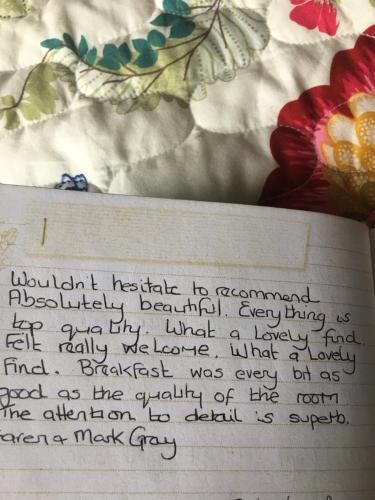 Wouldn't hesitate to recommend
Absolutely beautiful. Everything is
top quality. What a Lovely find
Felt really welcome. What a Lovely
Find. Breakfast was every bit as
good as the quality of the room
The attention to detail is superb.
aren + Mark Gray